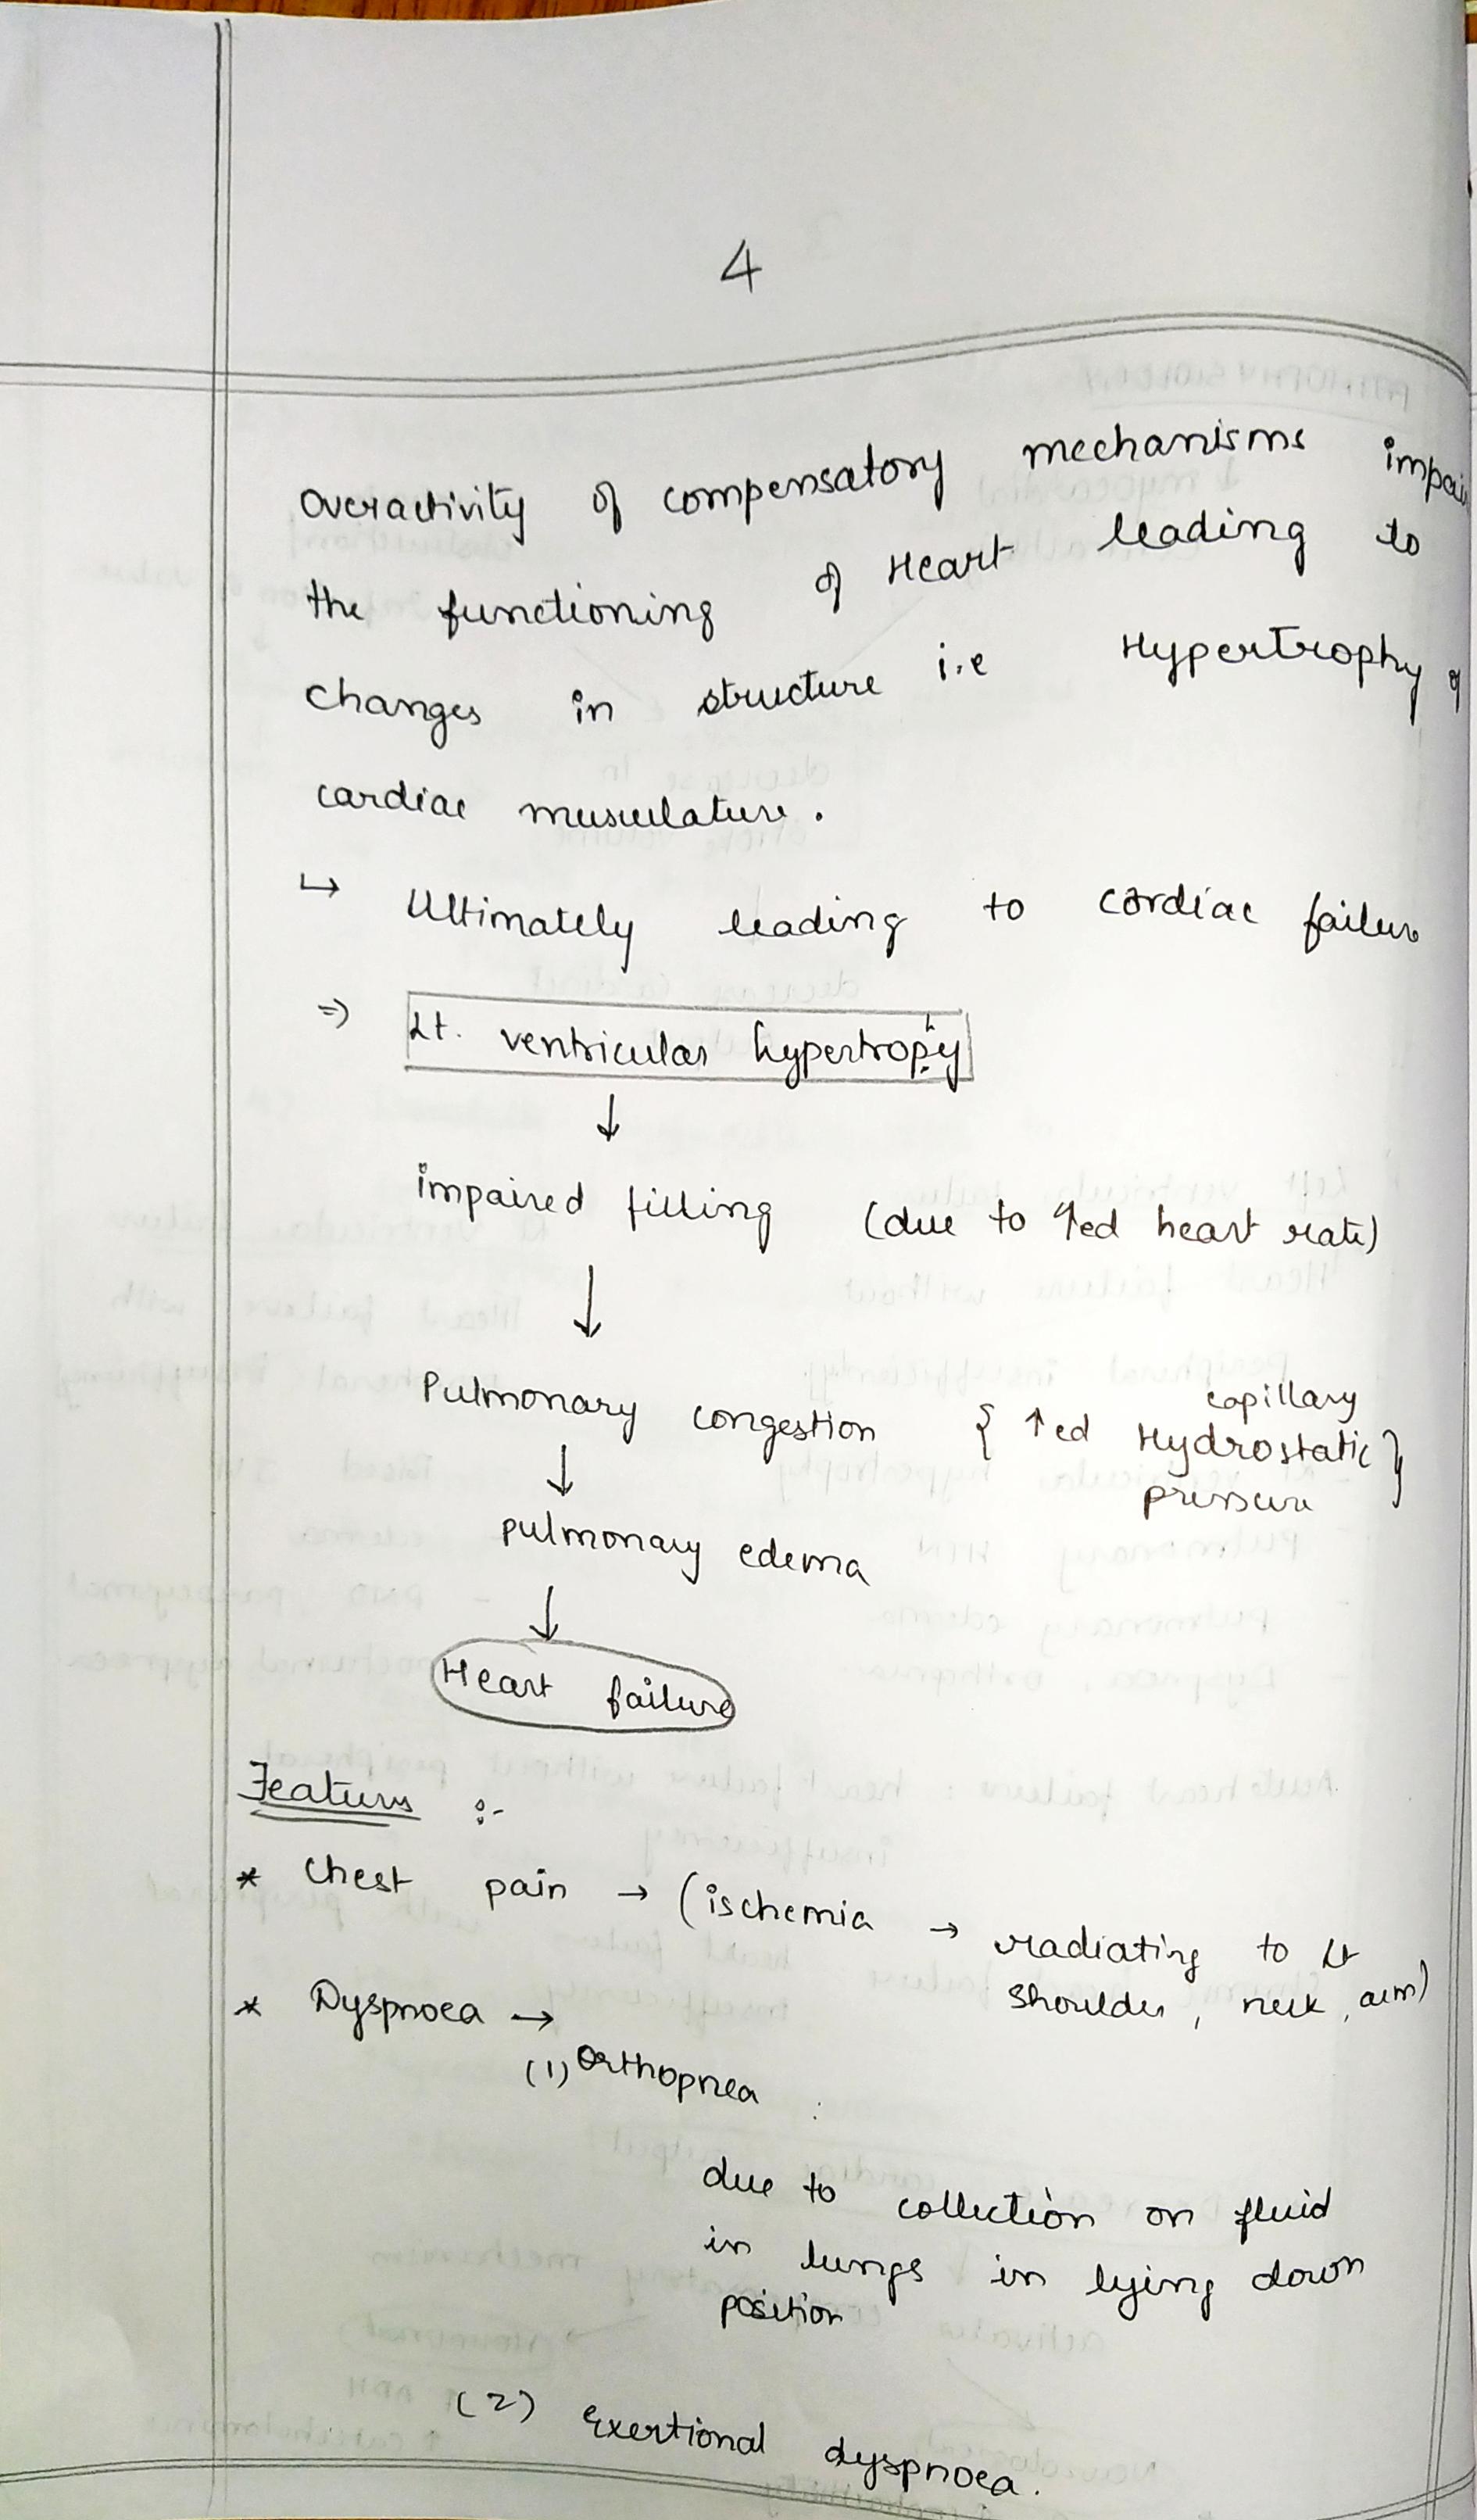 4
overactivity of compensatory mechanisms impai
the functioning of Heart leading to
changes in structure i.e Hypertrophy of
cardiac musculature.
↳ Ultimately leading to cardiac failure
⇒ Lt. ventricular hypertrophy
↓
impaired filling (due to ↑ed heart rate)
↓
Pulmonary congestion { ↑ed capillary Hydrostatic pressure }
↓
pulmonary edema
↓
Heart failure
Features :-
* Chest pain → (ischemia → radiating to Lt
shoulder, neck, arm)
* Dyspnoea →
(1) Orthopnea
due to collection on fluid
in lungs in lying down
position
(2) Exertional dyspnoea.